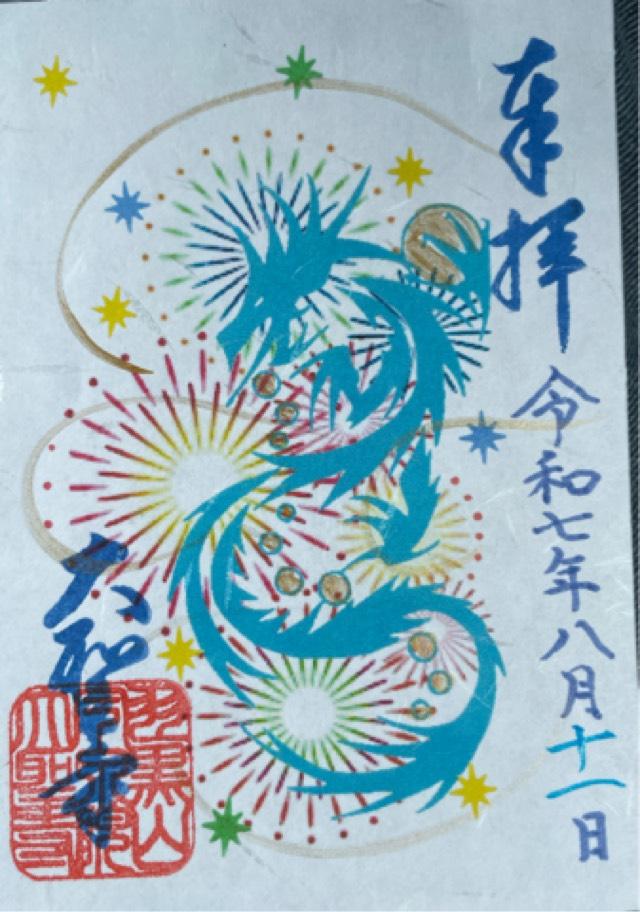 奉拝
令和七年八月十一日
大聖寺